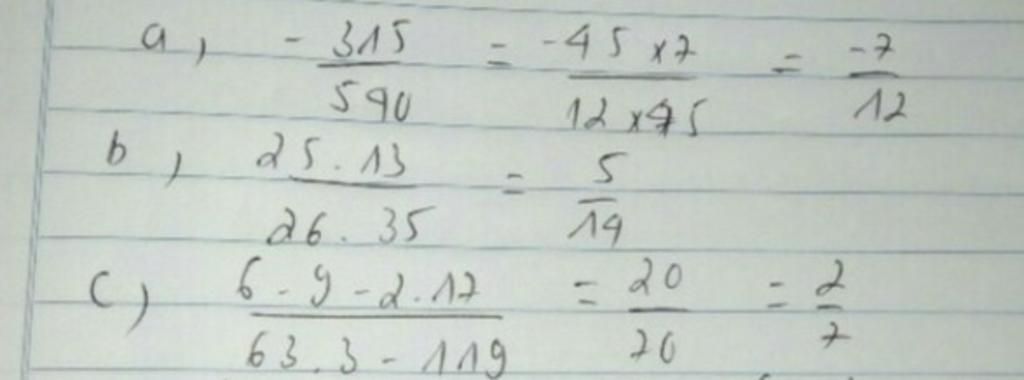 a, -315/590 = -45 x 7/12 x 45 = -7/12
b, 25.13/26.35 = 5/14
c) 6-9-2.17/63.3-119 = 20/70 = 2/7